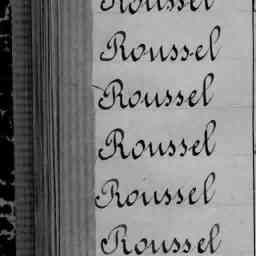 Roussel
Roussel
Roussel
Roussel
Roussel
Roussel